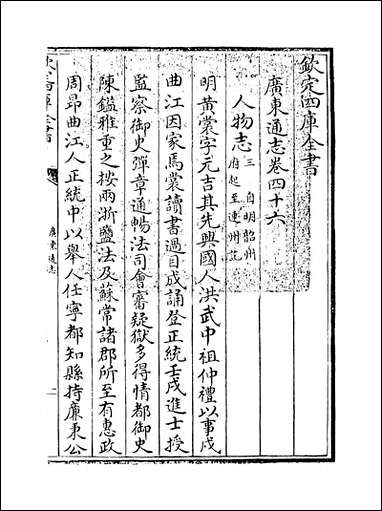 欽定四庫全書
廣東通志卷四十六
人物志三
自明韶州
府起至連州訖
明黄裳字元吉其先興國人洪武中祖仲禮以事戍
曲江因家焉裳讀書過目成誦登正統壬戌進士授
監察御史彈章通暢法司會審疑獄多得情都御史
陳鎰雅重之按兩浙鹽法及蘇常諸郡所至有惠政
周昂曲江人正統中以舉人任寧都知縣持廉秉公
廣東通志